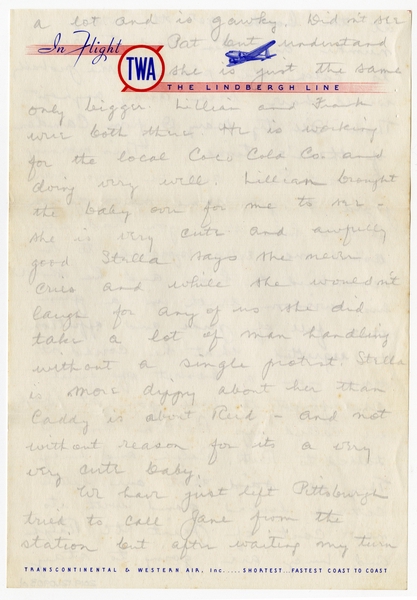 a lot and is gawky. Did n't see
In Flight
Pat but understand
TWA
she is just the same
THE LINDBERGH LINE
only bigger. Lillian and Frank
were both there. He is working
for the local Coca Cola Co. and
doing very well. Lillian brought
the baby over for me to see -
she is very cute and awfully
good Stella says she never
cries and while she wouldn't
laugh for any of us she did
take a lot of man handling
without a single protest. Stella
is more dippy about her than
Caddy is about Reid - and not
without reason for its a very
very cute baby.
We have just left Pittsburgh
tried to call Jane from the
station but after waiting my turn
TRANSCONTINENTAL & WESTERN AIR, Inc.....SHORTEST...FASTEST COAST TO COAST